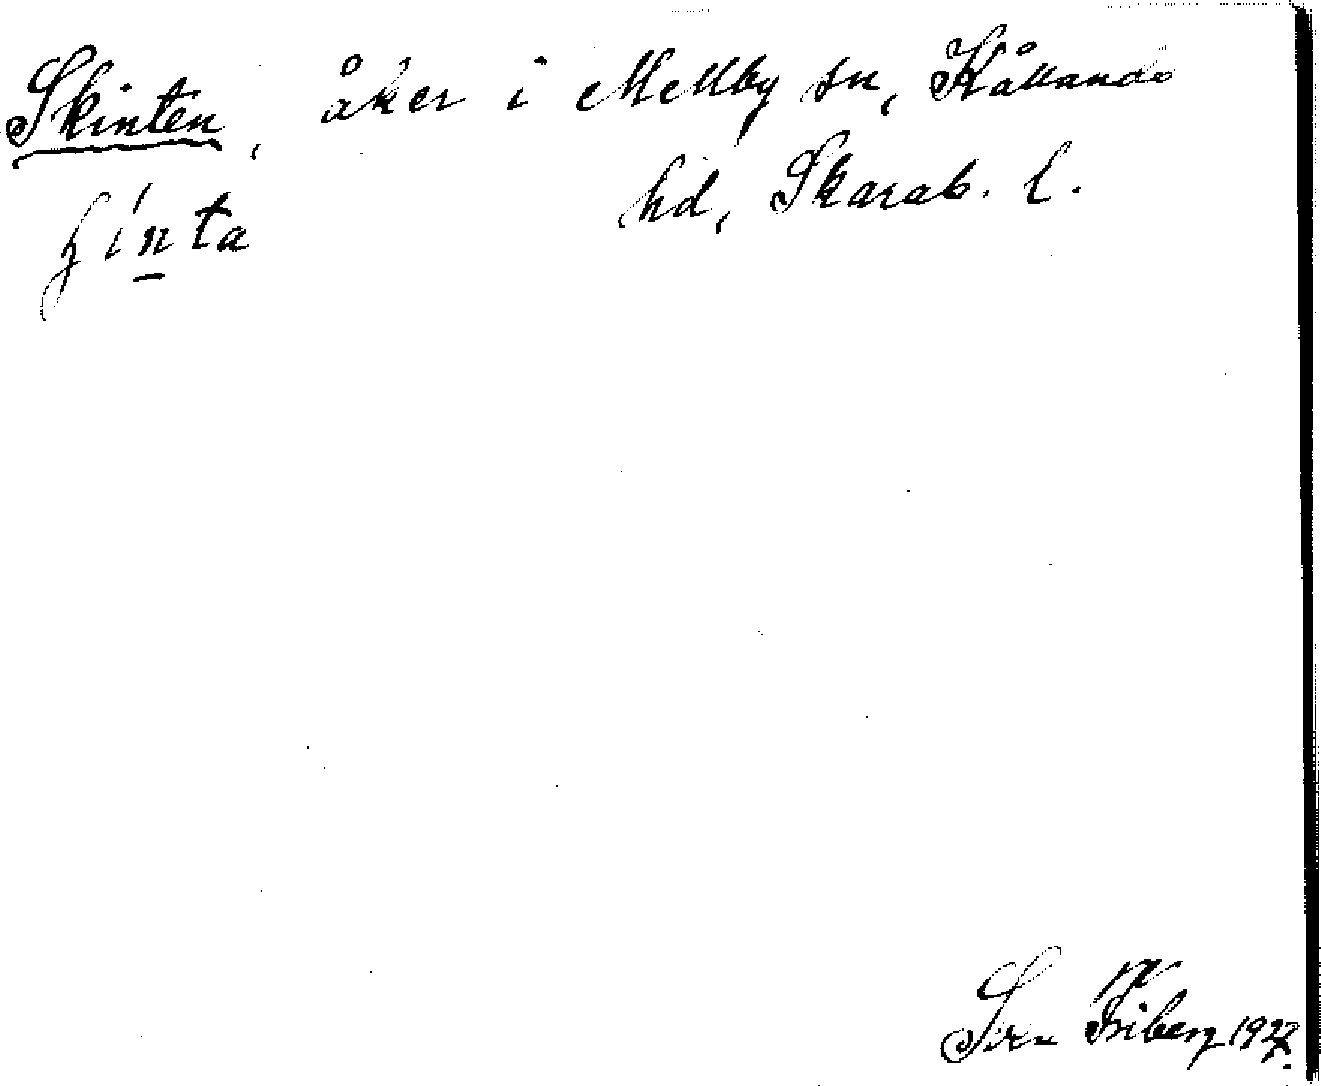 Skinten, åker i Mellby sn, Kållands
hd, Skarab. l.
ʃinta
Sven Friberg 1927.